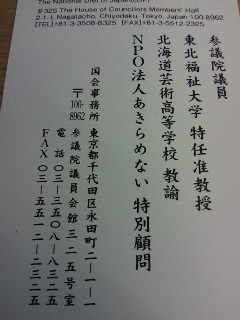 The National Diet of Japan(LDP)
#325 The House of Councillors Members' Hall
2-1-1, Nagatacho, Chiyodaku, Tokyo, Japan 100-8962
[TEL]+81-3-3508-8325 [FAX]+81-3-5512-2325
参議院議員
東北福祉大学 特任准教授
北海道芸術高等学校 教諭
NPO法人あきらめない 特別顧問
国会事務所
〒100-8962
東京都千代田区永田町二ー一ー一
参議院議員会館三二五号室
電話〇三ー三五〇八ー八三二五
FAX〇三ー五五一二ー二三二五